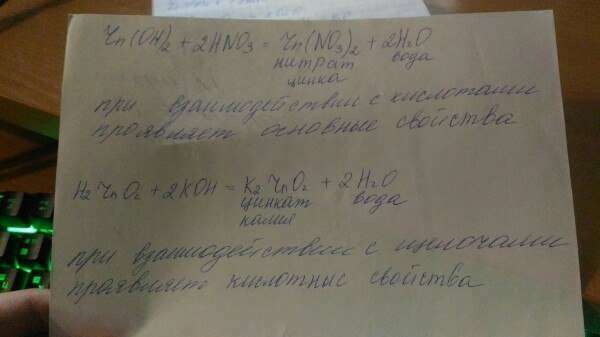 Zn(OH)₂ + 2HNO₃ = Zn(NO₃)₂ + 2H₂O
нитрат вода
цинка
при взаимодействии с кислотами
проявляет основные свойства
H₂ZnO₂ + 2KOH = K₂ZnO₂ + 2H₂O
цинкат вода
калия
при взаимодействии с щелочами
проявляет кислотные свойства